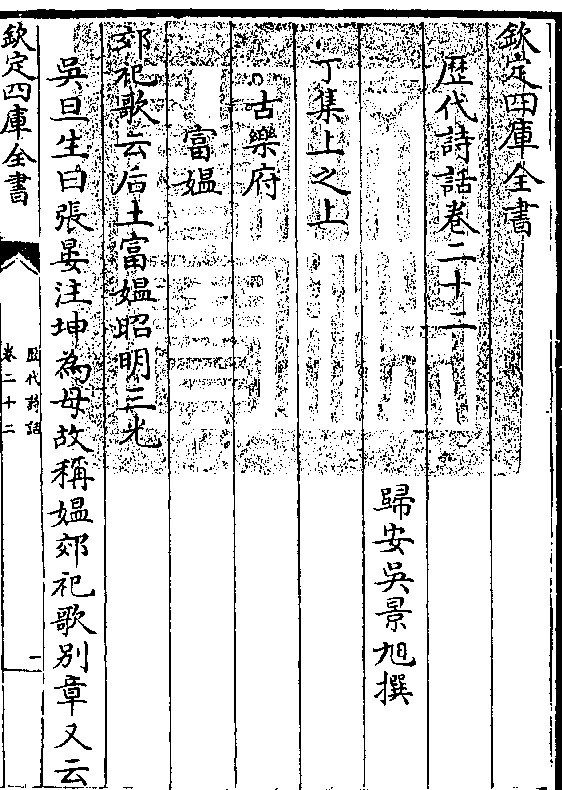 欽定四庫全書
歷代詩話卷二十二
歸安吳景旭撰
丁集上之上
古樂府
富媪
郊祀歌云后土富媪昭明三光
吳旦生曰張晏注坤為母故稱媪郊祀歌別章又云
欽定四庫全書
歷代詩話
卷二十二
一